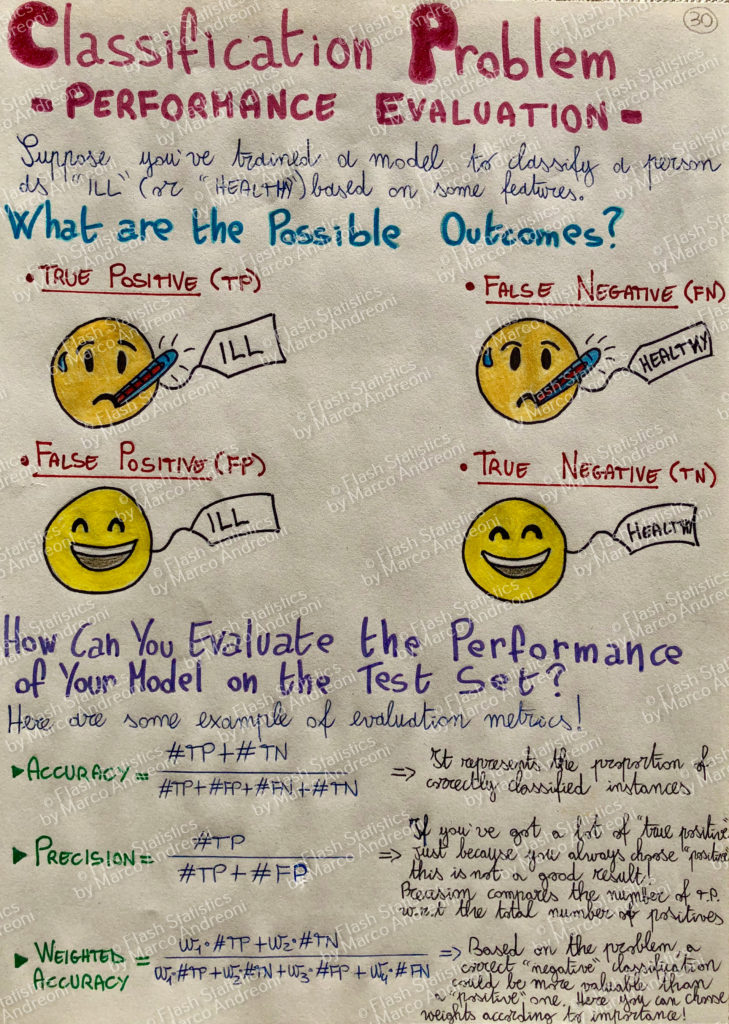 30
Classification Problem
- PERFORMANCE EVALUATION -
Suppose you've trained a model to classify a person
as "ILL" (or "HEALTHY") based on some features.
What are the Possible Outcomes?
• TRUE POSITIVE (TP)
ILL
• FALSE NEGATIVE (FN)
HEALTHY
• FALSE POSITIVE (FP)
ILL
• TRUE NEGATIVE (TN)
HEALTHY
How Can You Evaluate the Performance
of Your Model on the Test Set?
Here are some example of evaluation metrics!
▶ ACCURACY = #TP + #TN / #TP + #FP + #FN + #TN
=> It represents the proportion of
correctly classified instances
▶ PRECISION = #TP / #TP + #FP
=> If you've got a lot of "true positive"
just because you always choose "positive"
this is not a good result!
Precision compares the number of T.P.
w.r.t the total number of positives
▶ WEIGHTED
ACCURACY = w₁·#TP + w₂·#TN / w₁·#TP + w₂·#TN + w₃·#FP + w₄·#FN
=> Based on the problem, a
correct "negative" classification
could be more valuable than
a "positive" one. Here you can choose
weights according to importance!
© Flash Statistics
by Marco Andreoni